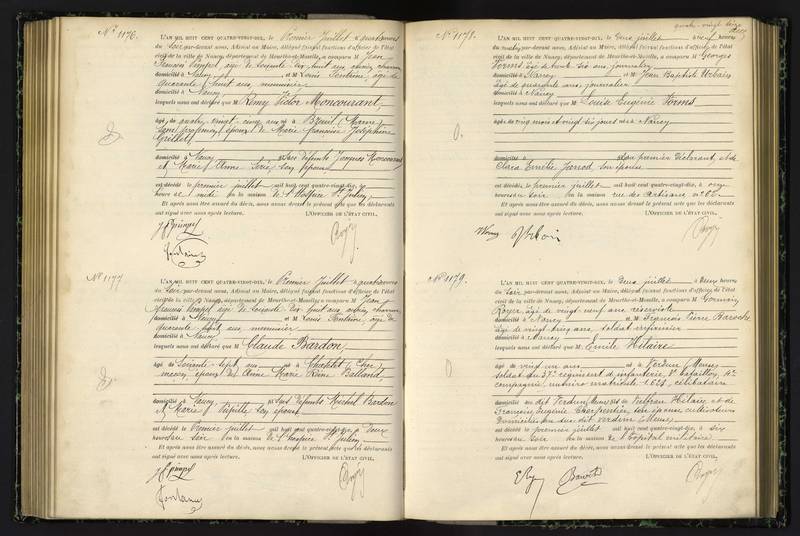 N° 1176.
L'AN MIL HUIT CENT QUATRE-VINGT-DIX, le Premier Juillet à quatre heures
du soir, par-devant nous, Adjoint au Maire, délégué faisant fonctions d'officier de l'état
civil de la ville de Nancy, département de Meurthe-et-Moselle, a comparu M Jean
domicilié à Nancy et M Louis Fontaine, âgé de
quarante huit ans, menuisier
domicilié à Nancy
lesquels nous ont déclaré que M Remy Victor Moncourant,
âgé de quatre-vingt-cinq ans né à Breuil (Marne)
sans profession, époux de Marie Françoise Joséphine
domicilié à Nancy fils des défunts Jacques Moncourant
et Marie Anne son épouse
est décédé le premier juillet mil huit cent quatre-vingt-dix, à
heure de midi en la maison de l'Hospice St Julien
Et après nous être assuré du décès, nous avons dressé le présent acte que les déclarants
ont signé avec nous après lecture. L'OFFICIER DE L'ÉTAT CIVIL,
Fontaine
N° 1177
L'AN MIL HUIT CENT QUATRE-VINGT-DIX, le Premier Juillet à quatre heures
du soir, par-devant nous, Adjoint au Maire, délégué faisant fonctions d'officier de l'état
civil de la ville de Nancy, département de Meurthe-et-Moselle, a comparu M Jean
domicilié à Nancy et M Louis Fontaine, âgé de
quarante huit ans, menuisier
domicilié à Nancy
lesquels nous ont déclaré que M Claude Bardon,
âgé de soixante sept ans né à
époux de Anne Marie Reine
domicilié à Nancy fils des défunts Bardon
et Marie son épouse
est décédé le Premier juillet mil huit cent quatre-vingt-dix, à deux
heures du soir en la maison de l'hospice St Julien
Et après nous être assuré du décès, nous avons dressé le présent acte que les déclarants
ont signé avec nous après lecture. L'OFFICIER DE L'ÉTAT CIVIL,
Fontaine
N° 1178.
L'AN MIL HUIT CENT QUATRE-VINGT-DIX, le deux juillet à neuf heures
du matin, par-devant nous, Adjoint au Maire, délégué faisant fonctions d'officier de l'état
civil de la ville de Nancy, département de Meurthe-et-Moselle, a comparu M Georges
Worms âgé de trente six ans, journalier
domicilié à Nancy et M Jean Baptiste Urbain
âgé de quarante ans, journalier
domicilié à Nancy
lesquels nous ont déclaré que M Louise Eugénie Worms
âgé de cinq mois et vingt six jours née à Nancy
domicilié à du premier déclarant, et de
Clara Emélie Jarrod, son épouse
est décédé le premier juillet mil huit cent quatre-vingt-dix, à onze
heures du soir en la maison rue des Artisans n°
Et après nous être assuré du décès, nous avons dressé le présent acte que les déclarants
ont signé avec nous après lecture. L'OFFICIER DE L'ÉTAT CIVIL,
Worms Urbain
N° 1179.
L'AN MIL HUIT CENT QUATRE-VINGT-DIX, le deux juillet à deux heures
du soir, par-devant nous, Adjoint au Maire, délégué faisant fonctions d'officier de l'état
civil de la ville de Nancy, département de Meurthe-et-Moselle, a comparu M Germain
Royer, âgé de vingt neuf ans, réserviste
domicilié à Nancy et M François Pierre Baroche
âgé de vingt trois ans, soldat infirmier
domicilié à Nancy
lesquels nous ont déclaré que M Emile Hilaire
âgé de vingt un ans né à Verdun (Meuse)
soldat au 37e régiment d'infanterie, bataillon, 4e
compagnie, numéro matricule 1628, célibataire
domicilié au dit Verdun (Meuse) fils de Hilaire et de
Françoise Eugénie Charpentier, son épouse cultivateurs
domiciliés au dit Verdun (Meuse)
est décédé le premier juillet mil huit cent quatre-vingt-dix, à six
heures du soir en la maison de l'hôpital militaire
Et après nous être assuré du décès, nous avons dressé le présent acte que les déclarants
ont signé avec nous après lecture. L'OFFICIER DE L'ÉTAT CIVIL,